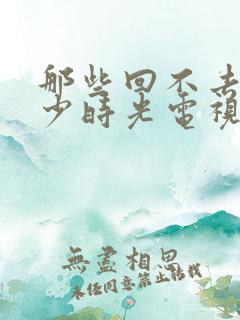 那些回不去
少時光電視
無盡相思
未經同意禁止轉載